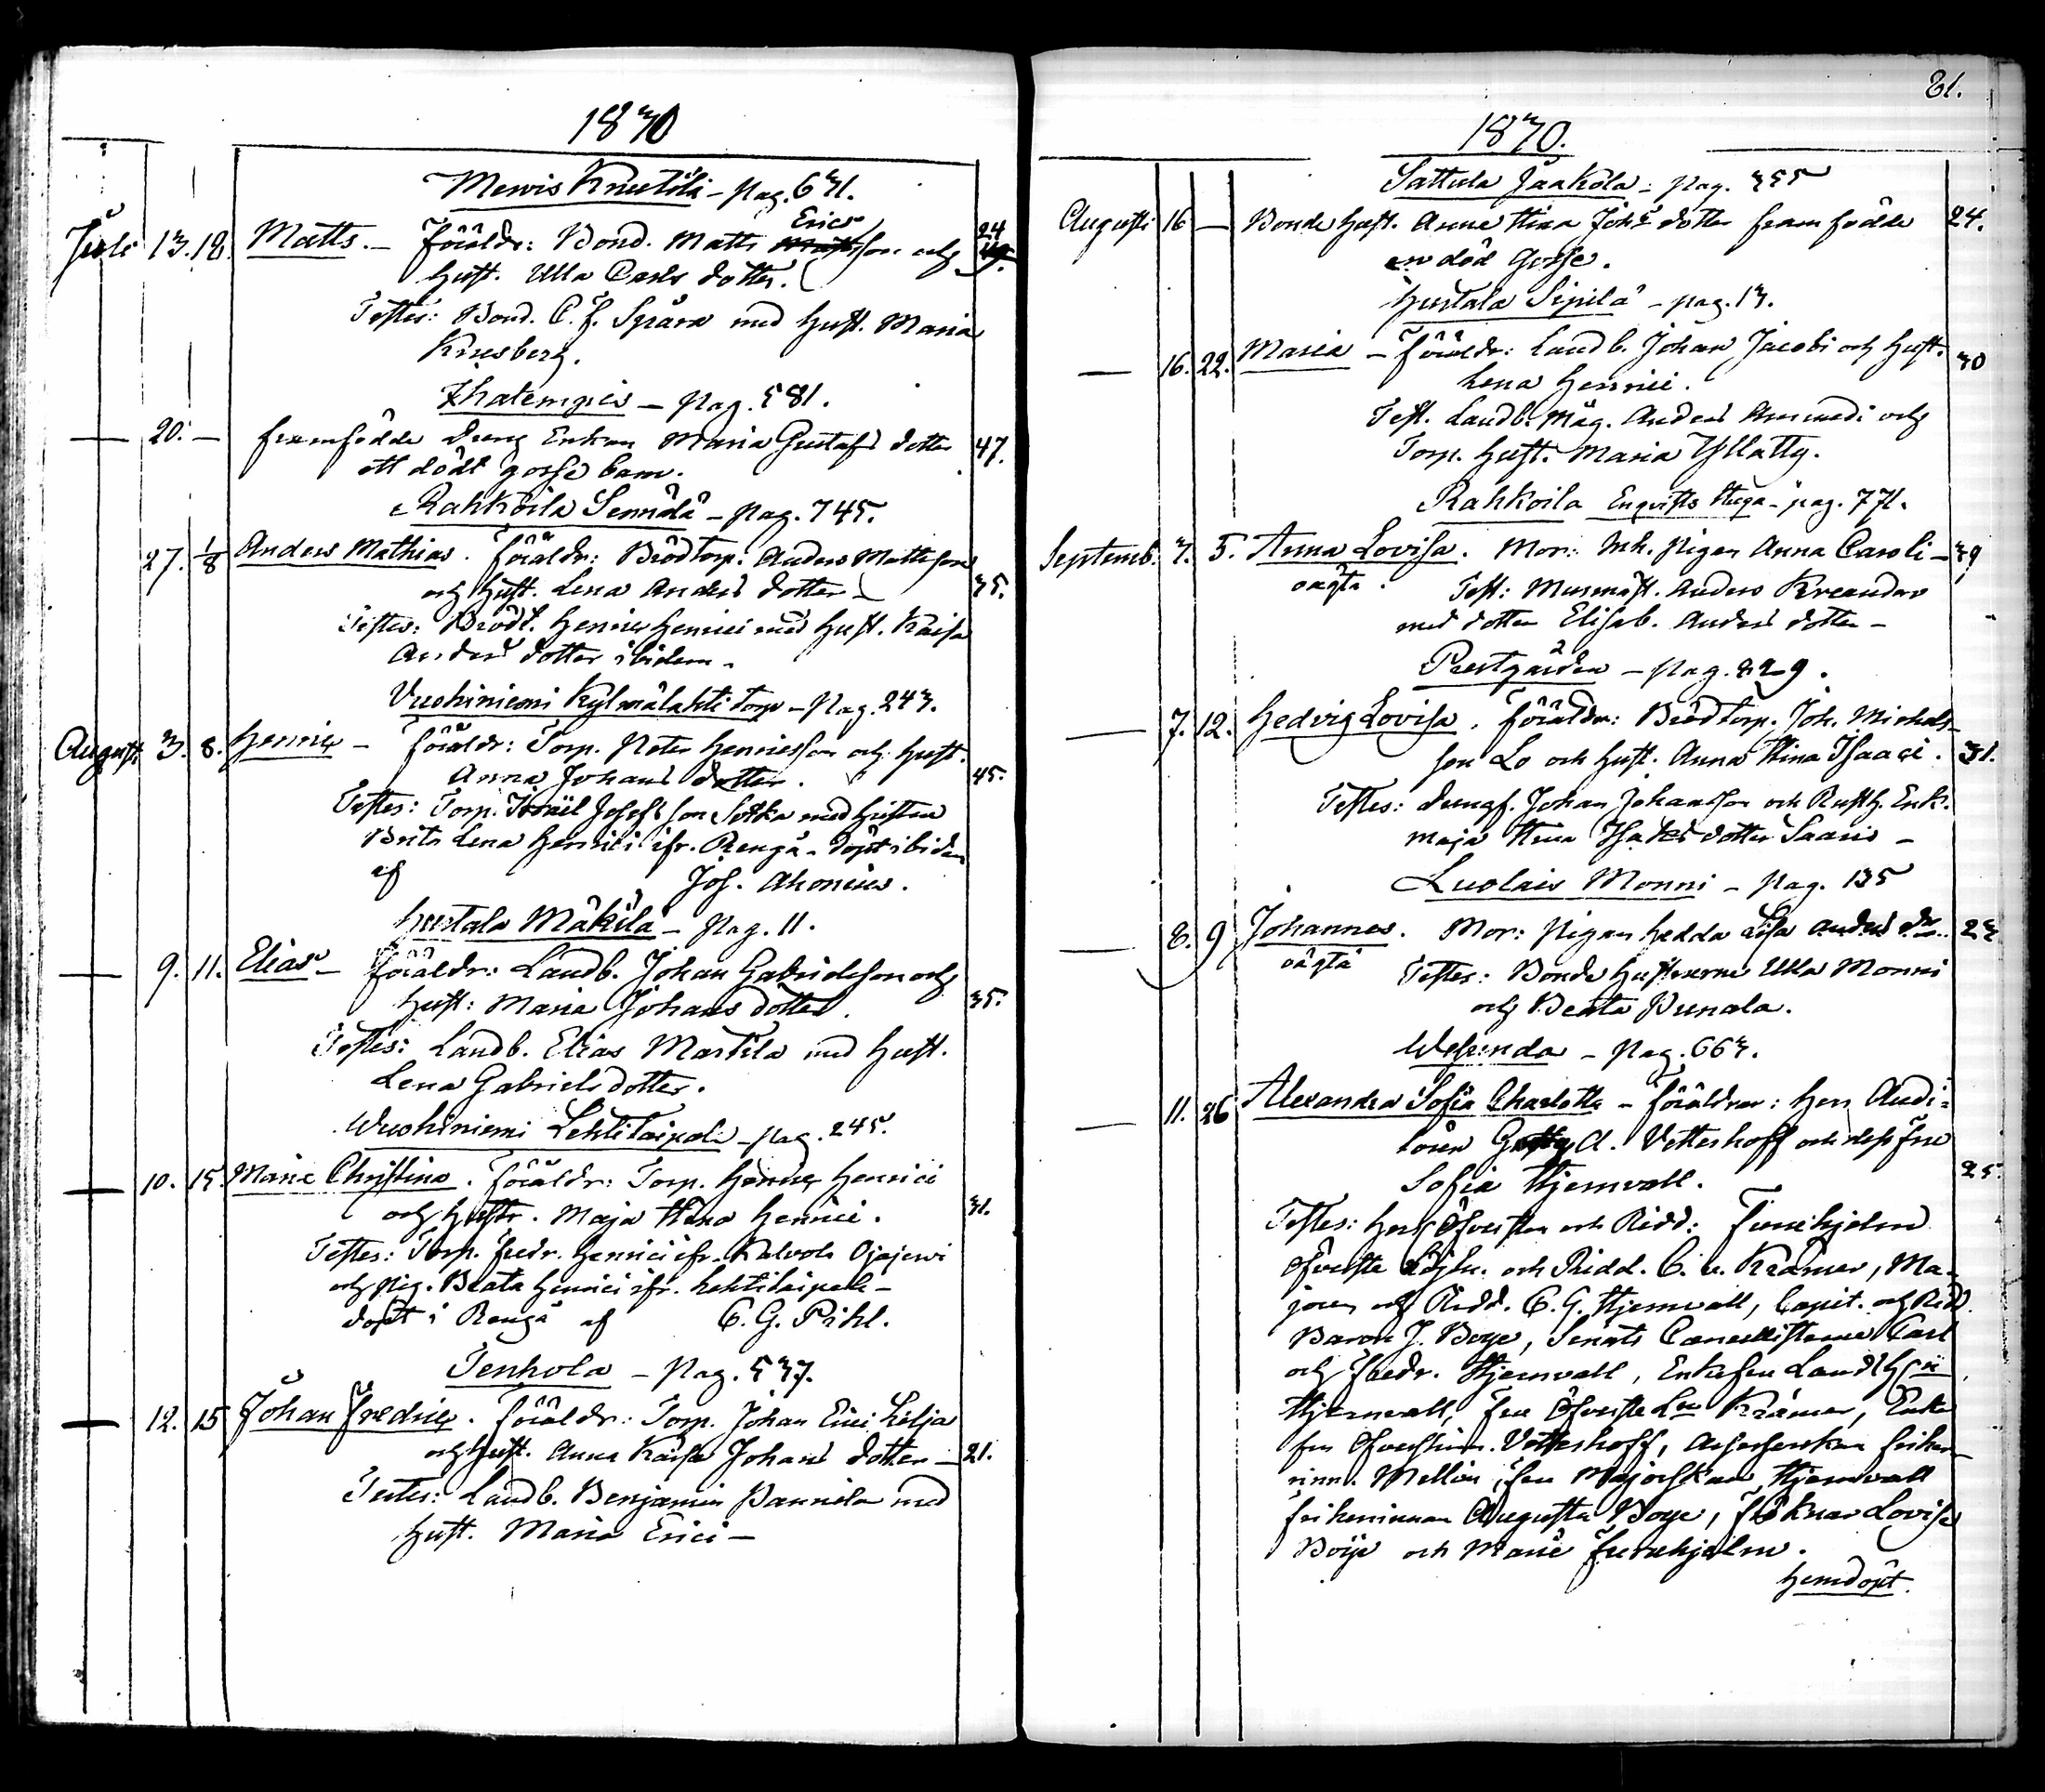 1870
Mervis Knutila - pag. 671.
Juli 13. 18. Matts. - Föräldr: Bond. Matts Erics son och 24
Hust. Ulla Carls dotter.
Testes: Bond. C. F. Spåra med Hust. Maria
Krusberg.
Ihalempis - pag. 581.
20. - framfödde dreng Enkan Maria Gustafs dotter 47.
ett dödt gosse barn.
Rahkoila Sennälä - pag. 745.
27. 1/8 Anders Mathias. Föräldr: Brödtorp. Anders Mattsson
och Hust. Lena Anders dotter - 35.
Testes: Brödt. Henric Henrici med Hust. Kaisa
Anders dotter ibidem.
Vuohiniemi Kylmälahti torp - pag. 243.
August. 3. 8. Henric - Föräldr: Torp. Peter Henricsson och Hust.
Anna Johans dotter. 45.
Testes: Torp. Israël Josefsson Sotka med Hustru
Brita Lena Henrici ifr. Rengå - döpt ibidem
af Jos. Ahonius.
Hurtala Mäkilä - pag. 11.
9. 11. Elias - Föräldr: Landb. Johan Gabrielsson och
Hust: Maria Johans dotter. 35.
Testes: Landb. Elias Martila med Hust.
Lena Gabriels dotter.
Wuohiniemi Lehtilaipale - pag. 245.
10. 15. Maria Christina. Föräldr: Torp. Henric Henrici
och Hustr. Maja Stina Henrici. 31.
Testes: Torp. Fredr. Henrici ifr. Kalvola Ojajervi
och Pig. Beata Henrici ifr. Lehtilaipale -
döpt i Rengå af C. G. Pihl.
Tenhola - pag. 537.
12. 15 Johan Fredric. Föräldr: Torp. Johan Erici Lilja
och Hust. Anna Kaisa Johans dotter - 21.
Testes: Landb. Benjamin Pannila med
Hust. Maria Erici -
81.
1870.
Sattula Jaakola - pag. 355
Augusti 16 - Bonde Hust. Anna Stina Johs dotter framfödde 24.
en död Gosse.
Hurtala Sipilä - pag. 13.
16. 22. Maria - Föräldr: Landb. Johan Jacobi och Hust. 30
Lena Henrici.
Test. Landb. Måg. Anders och
Torp. Hust. Maria Yllätty.
Rahkoila Enqvists stuga - pag. 771.
Septemb. 3. 5. Anna Lovisa. Mor: Inh. Pigan Anna Caroli - 39
oägta. Test: Murmäst. Anders Kreander
med dotter Elisab. Anders dotter -
Prestgården - pag. 829.
7. 12. Hedvig Lovisa. Föräldr: Brödtorp. Joh. Michels-
son Lo och Hust. Anna Stina Isaaci. 31.
Testes: Jungf. Johan Johansson och Rusth. Enk.
Maja Stina Isaks dotter Saaris -
Luolais Monni - pag. 135
8. 9 Johannes. Mor: Pigan Hedda Lisa Anders dr. 23
oägta Testes: Bonde Hustrurne Ulla Monni
och Beata Punala.
Wesunda - pag. 663.
11. 26 Alexandra Sofia Charlotta - Föräldrar: Herr Audi-
tören A. Vetterhoff och dess fru
Sofia Hjernvall. 25.
Testes: Herr Öfversten och Ridd: Furuhjelm
Öfverste Löjtn. och Ridd. C. v. Kræmer, Ma-
joren och Ridd. C. G. Stjernvall, Capit. och Ridd
Baron J. Boye, Senats Cancellisterne Carl
och Fredr. Stjernvall, Enkefru Landshfn
Stjernvall, Fru Öfverste Ln Kræmer, Enke
fru Öfverstinn. Vetterhoff, Assessorskan friher-
rinn. Mellin, fru Majorskan Stjernvall
friherinnan Augusta Boye, Fröknar Lovisa
Böije och Marie Furuhjelm.
Hemdöpt.